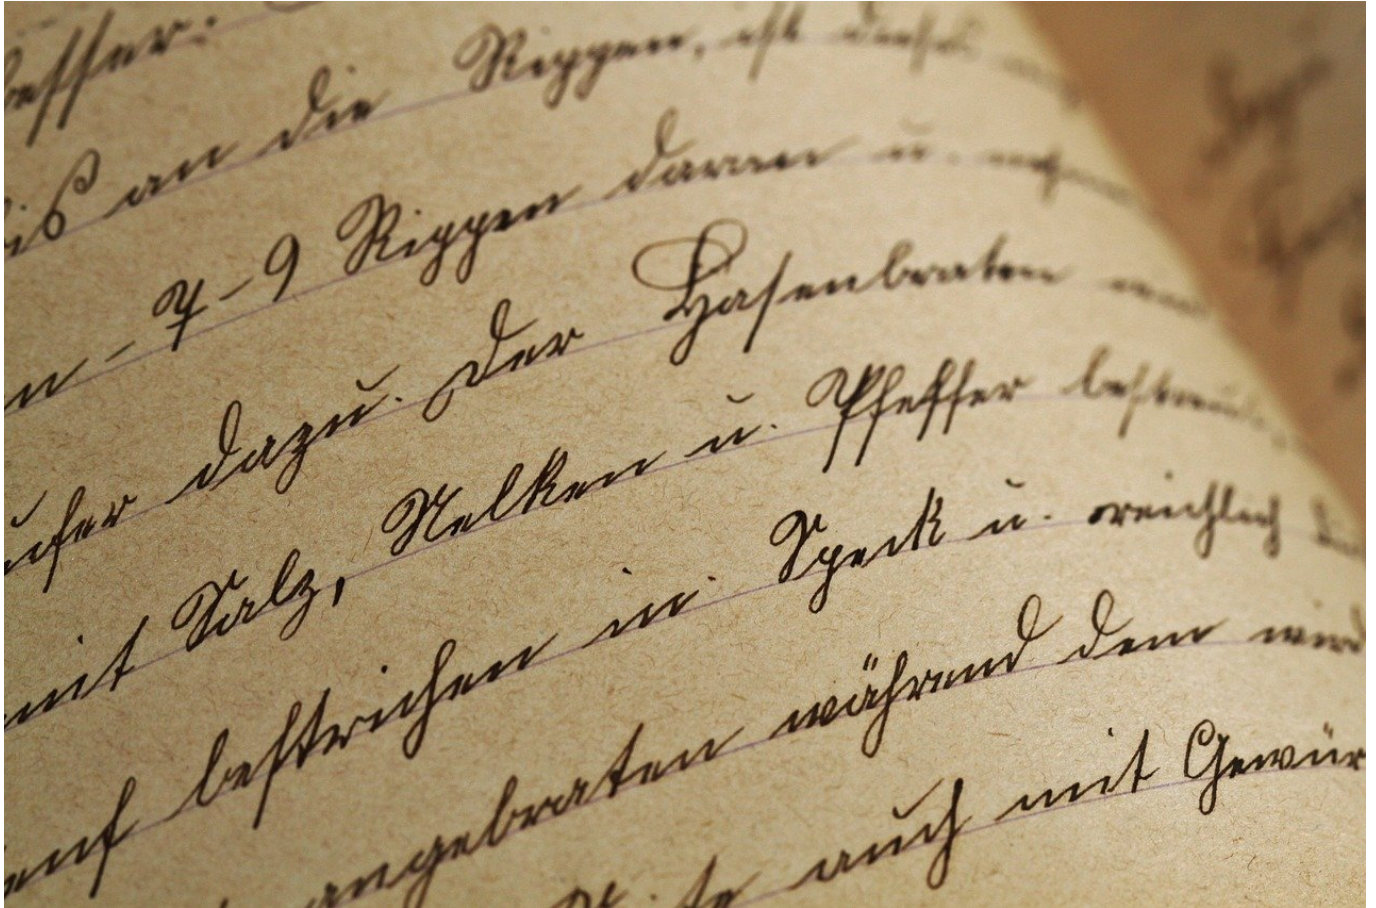 besser.
bis an die Rippen, ist dieses
n - 7-9 Rippen daran u.
dazu. Der Hasenbraten
mit Salz, Nelken u. Pfeffer bestreut,
bestrichen in Speck u. reichlich
angebraten während dem wird
auch mit Gewür